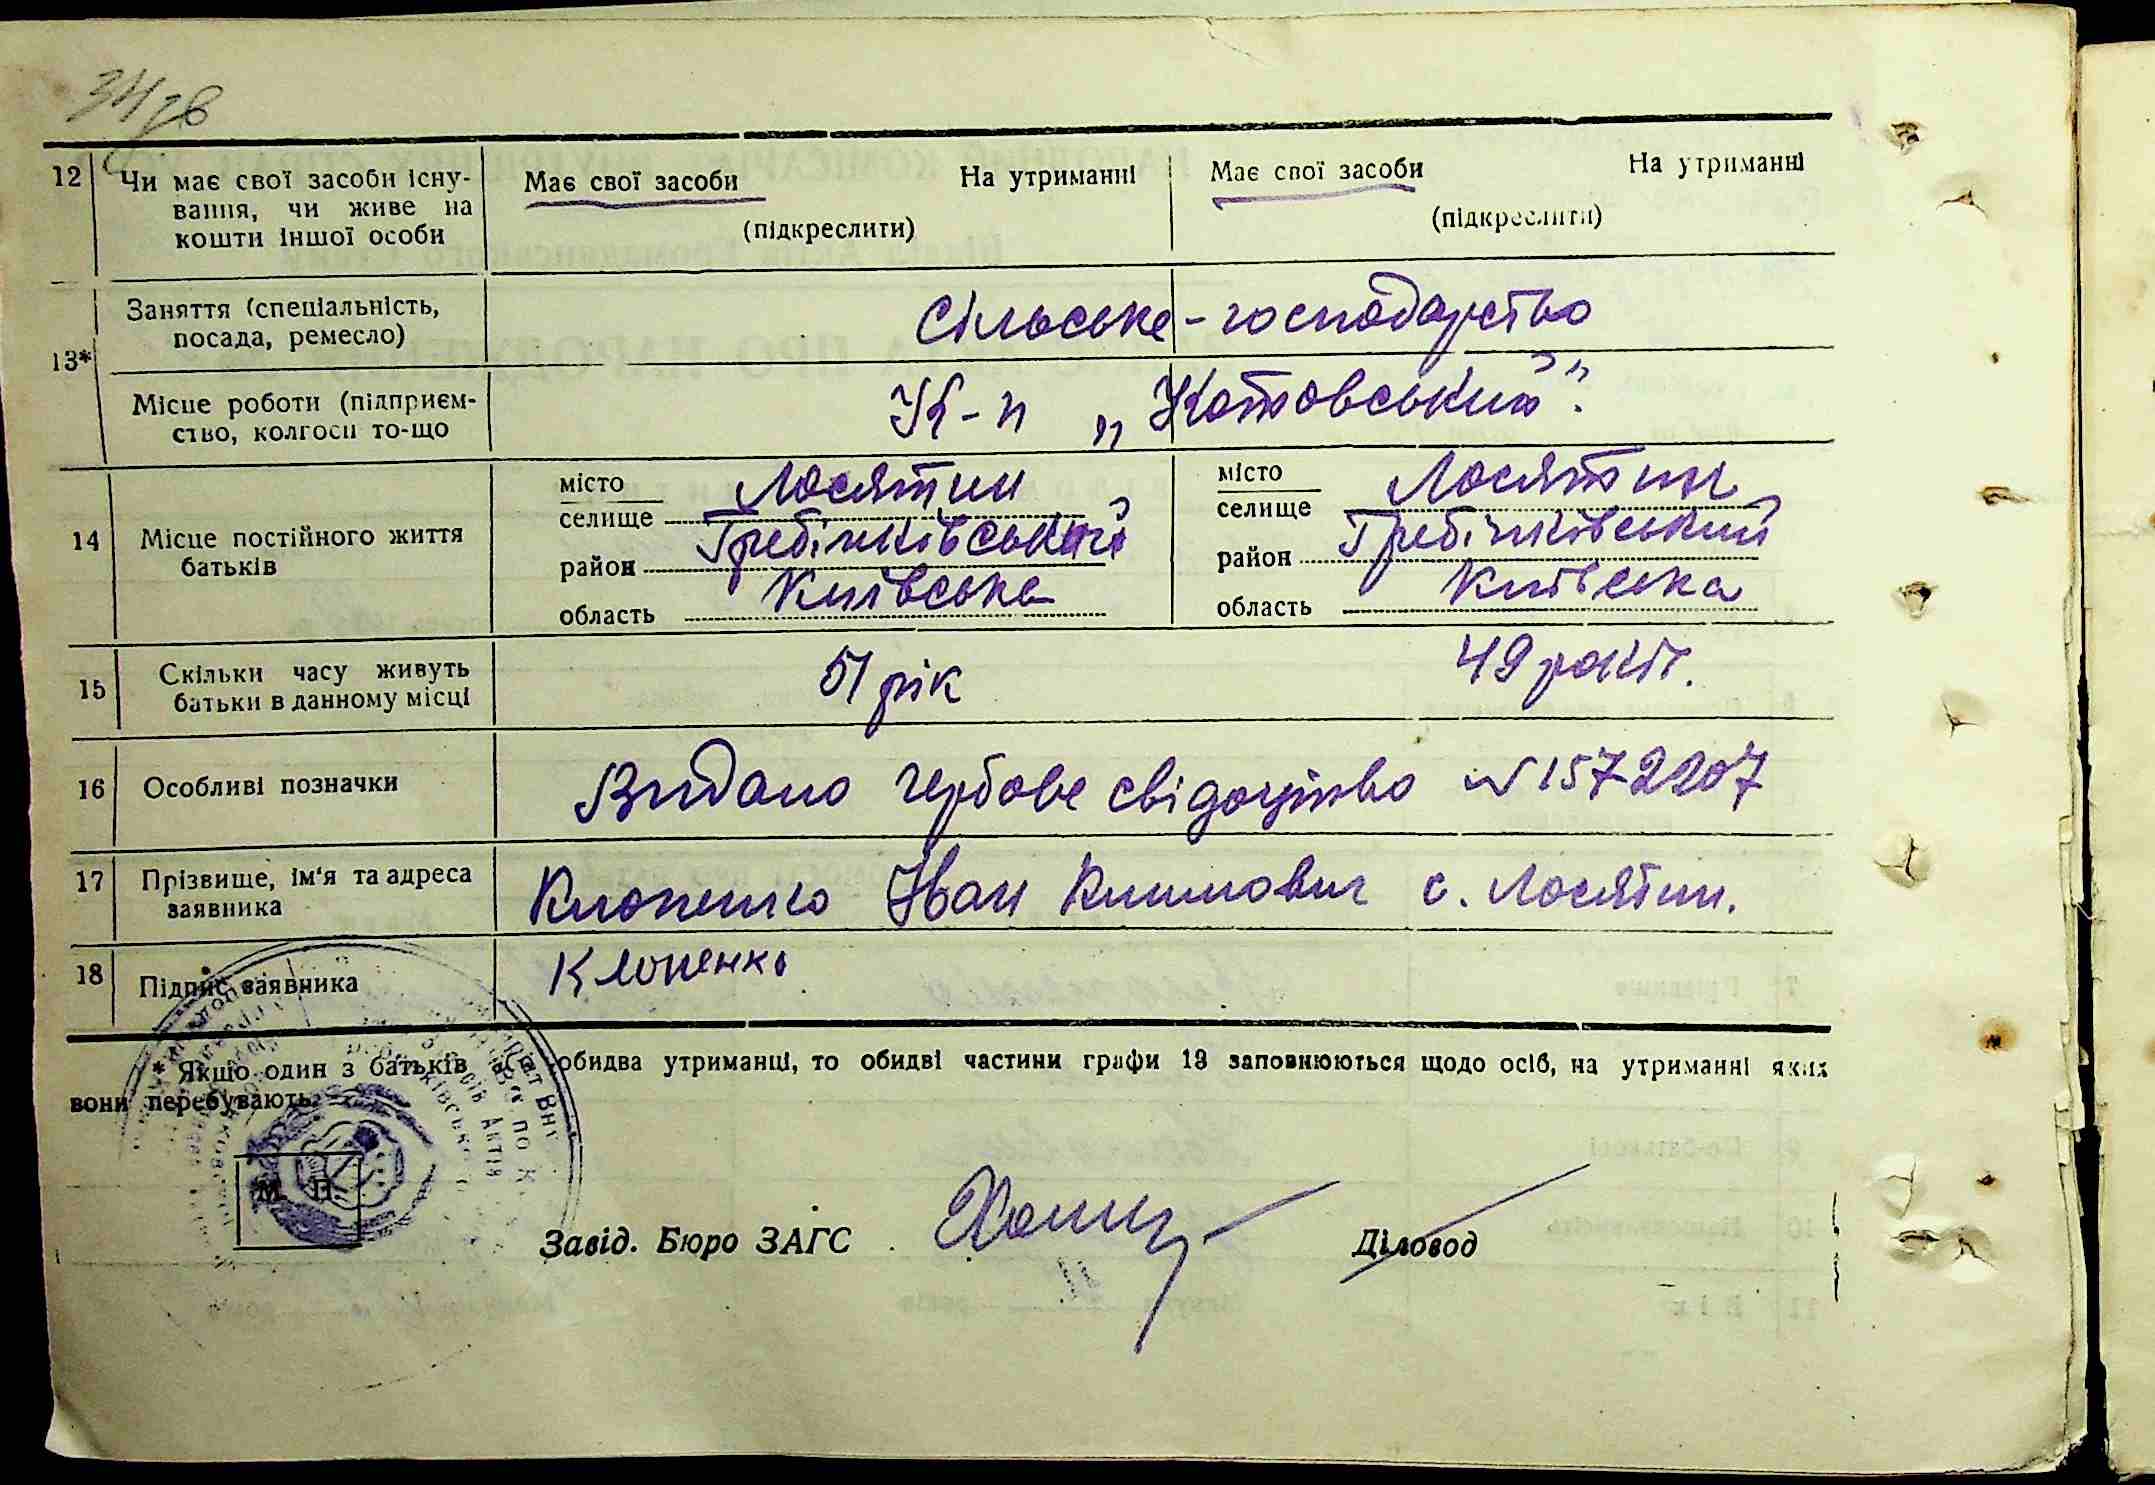 12 Чи має свої засоби існу- Має свої засоби На утриманні Має свої засоби На утриманні
вання, чи живе на
кошти іншої особи (підкреслити) (підкреслити)
Заняття (спеціальність, Сільське-господарство
посада, ремесло)
13*
Місце роботи (підприєм- К-п „Котовський".
ство, колгосп то-що
місто Лосятин місто Лосятин
селище селище
14 Місце постійного життя район Гребінківський район Гребінківський
батьків
область Київська область Київська
15 Скільки часу живуть 51 рік 49 років.
батьки в данному місці
16 Особливі позначки Видано гербове свідоцтво №1572207
17 Прізвище, ім'я та адреса Клопенко Іван Климович с. Лосятин.
заявника
18 Підпис заявника Клопенко
* Якщо один з батьків обидва утриманці, то обидві частини графи 13 заповнюються щодо осіб, на утриманні яких
вони перебувають.
М. П.
Завід. Бюро ЗАГС Діловод